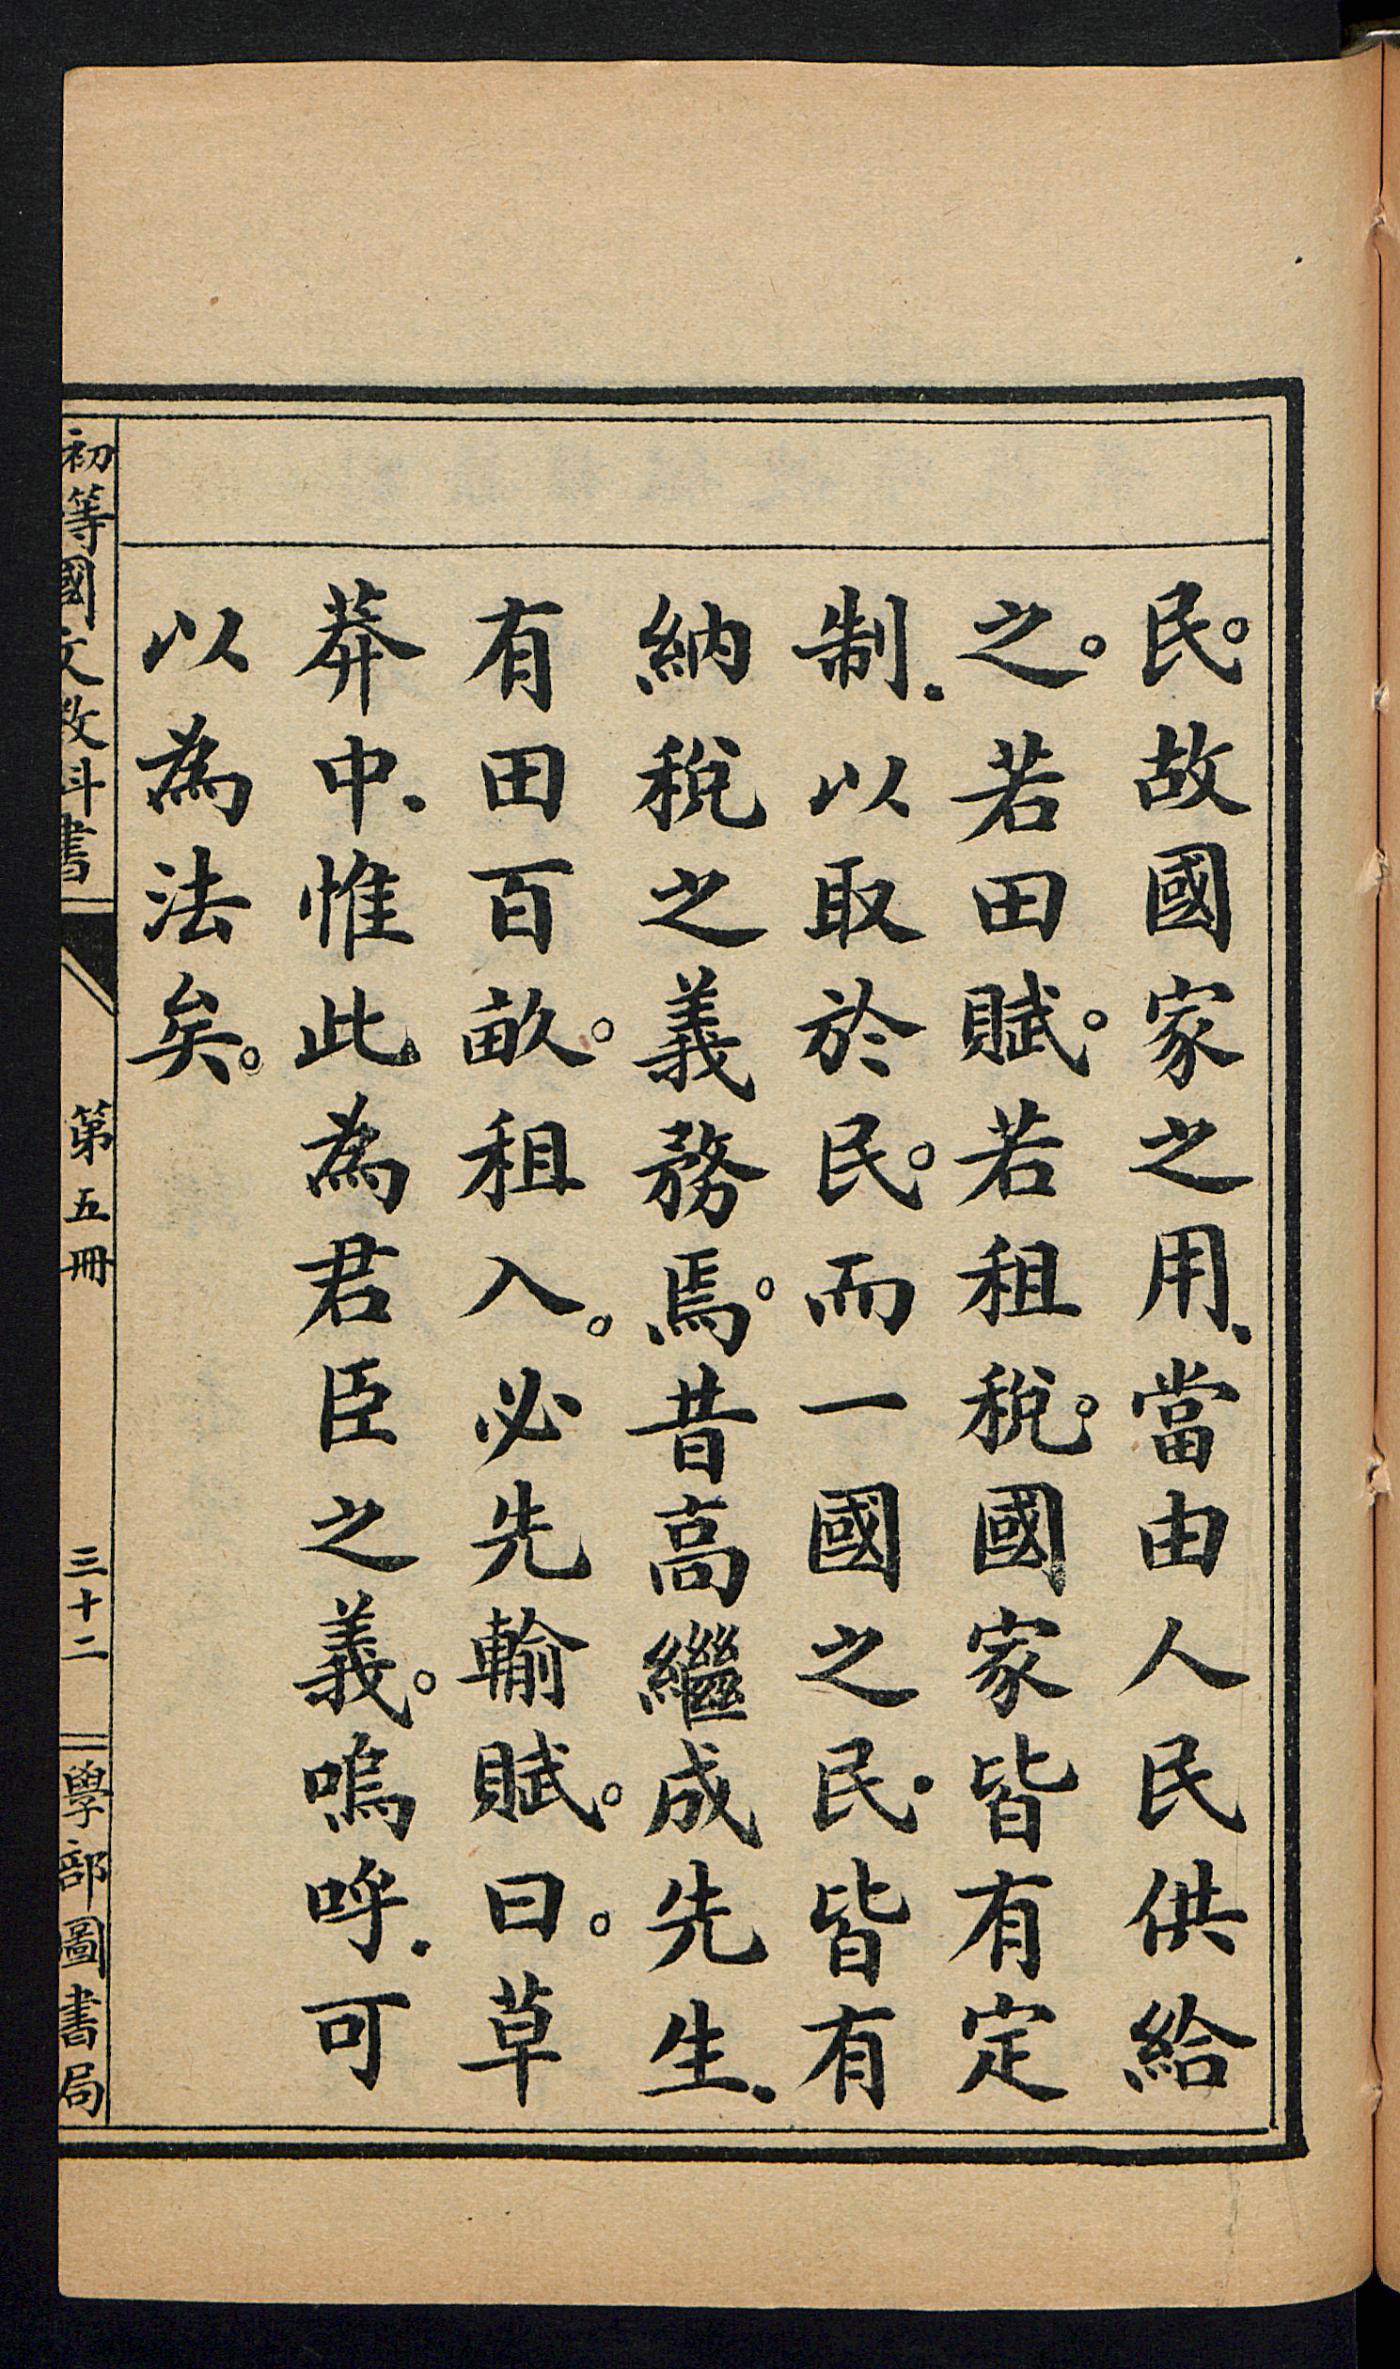 民。故國家之用．當由人民供給
之。若田賦。若租稅。國家皆有定
制．以取於民。而一國之民．皆有
納稅之義務焉。昔高繼成先生．
有田百畝。租入。必先輸賦。曰。草
莽中．惟此為君臣之義。嗚呼．可
以為法矣。
初等國文教科書 第五冊 三十二 學部圖書局